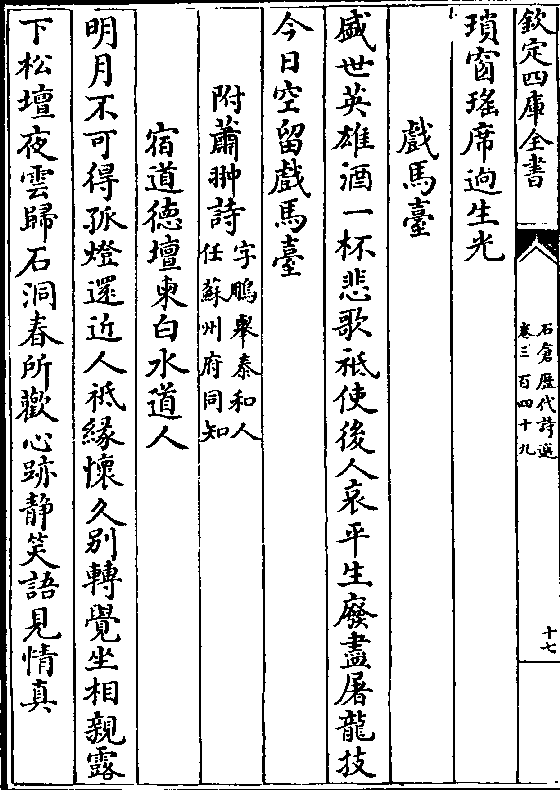 欽定四庫全書
石倉歷代詩選
卷三百四十九
十七
瑣窗瑤席逈生光
戲馬臺
盛世英雄酒一杯悲歌祗使後人哀平生廢盡屠龍技
今日空留戲馬臺
附蕭翀詩
字鵬舉泰和人
任蘇州府同知
宿道德壇柬白水道人
明月不可得孤燈還近人祗緣懷久别轉覺坐相親露
下松壇夜雲歸石洞春所歡心跡静笑語見情真